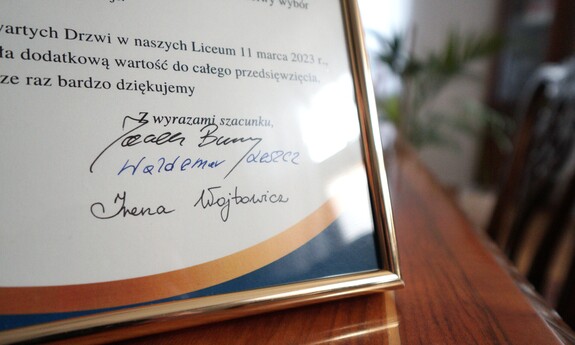 wy wybór
wartych Drzwi w naszych Liceum 11 marca 2023 r.,
ła dodatkową wartość do całego przedsięwzięcia.
ze raz bardzo dziękujemy
Z wyrazami szacunku,
Jacek
Waldemar Jaszcz
Irena Wojtowicz